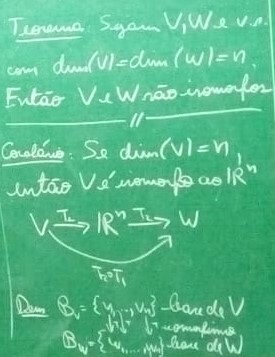 Teorema: Sejam V, W e v.s.
com dim(V) = dim(W) = n.
Então V e W são isomorfos
//
Corolário: Se dim(V) = n,
então V é isomorfo ao ℝⁿ
V T₁→ ℝⁿ T₂→ W
T₂∘T₁
Dem B_V = {v₁, ..., vₙ} base de V
isomorfismo
B_W = {w₁, ..., wₙ} base de W